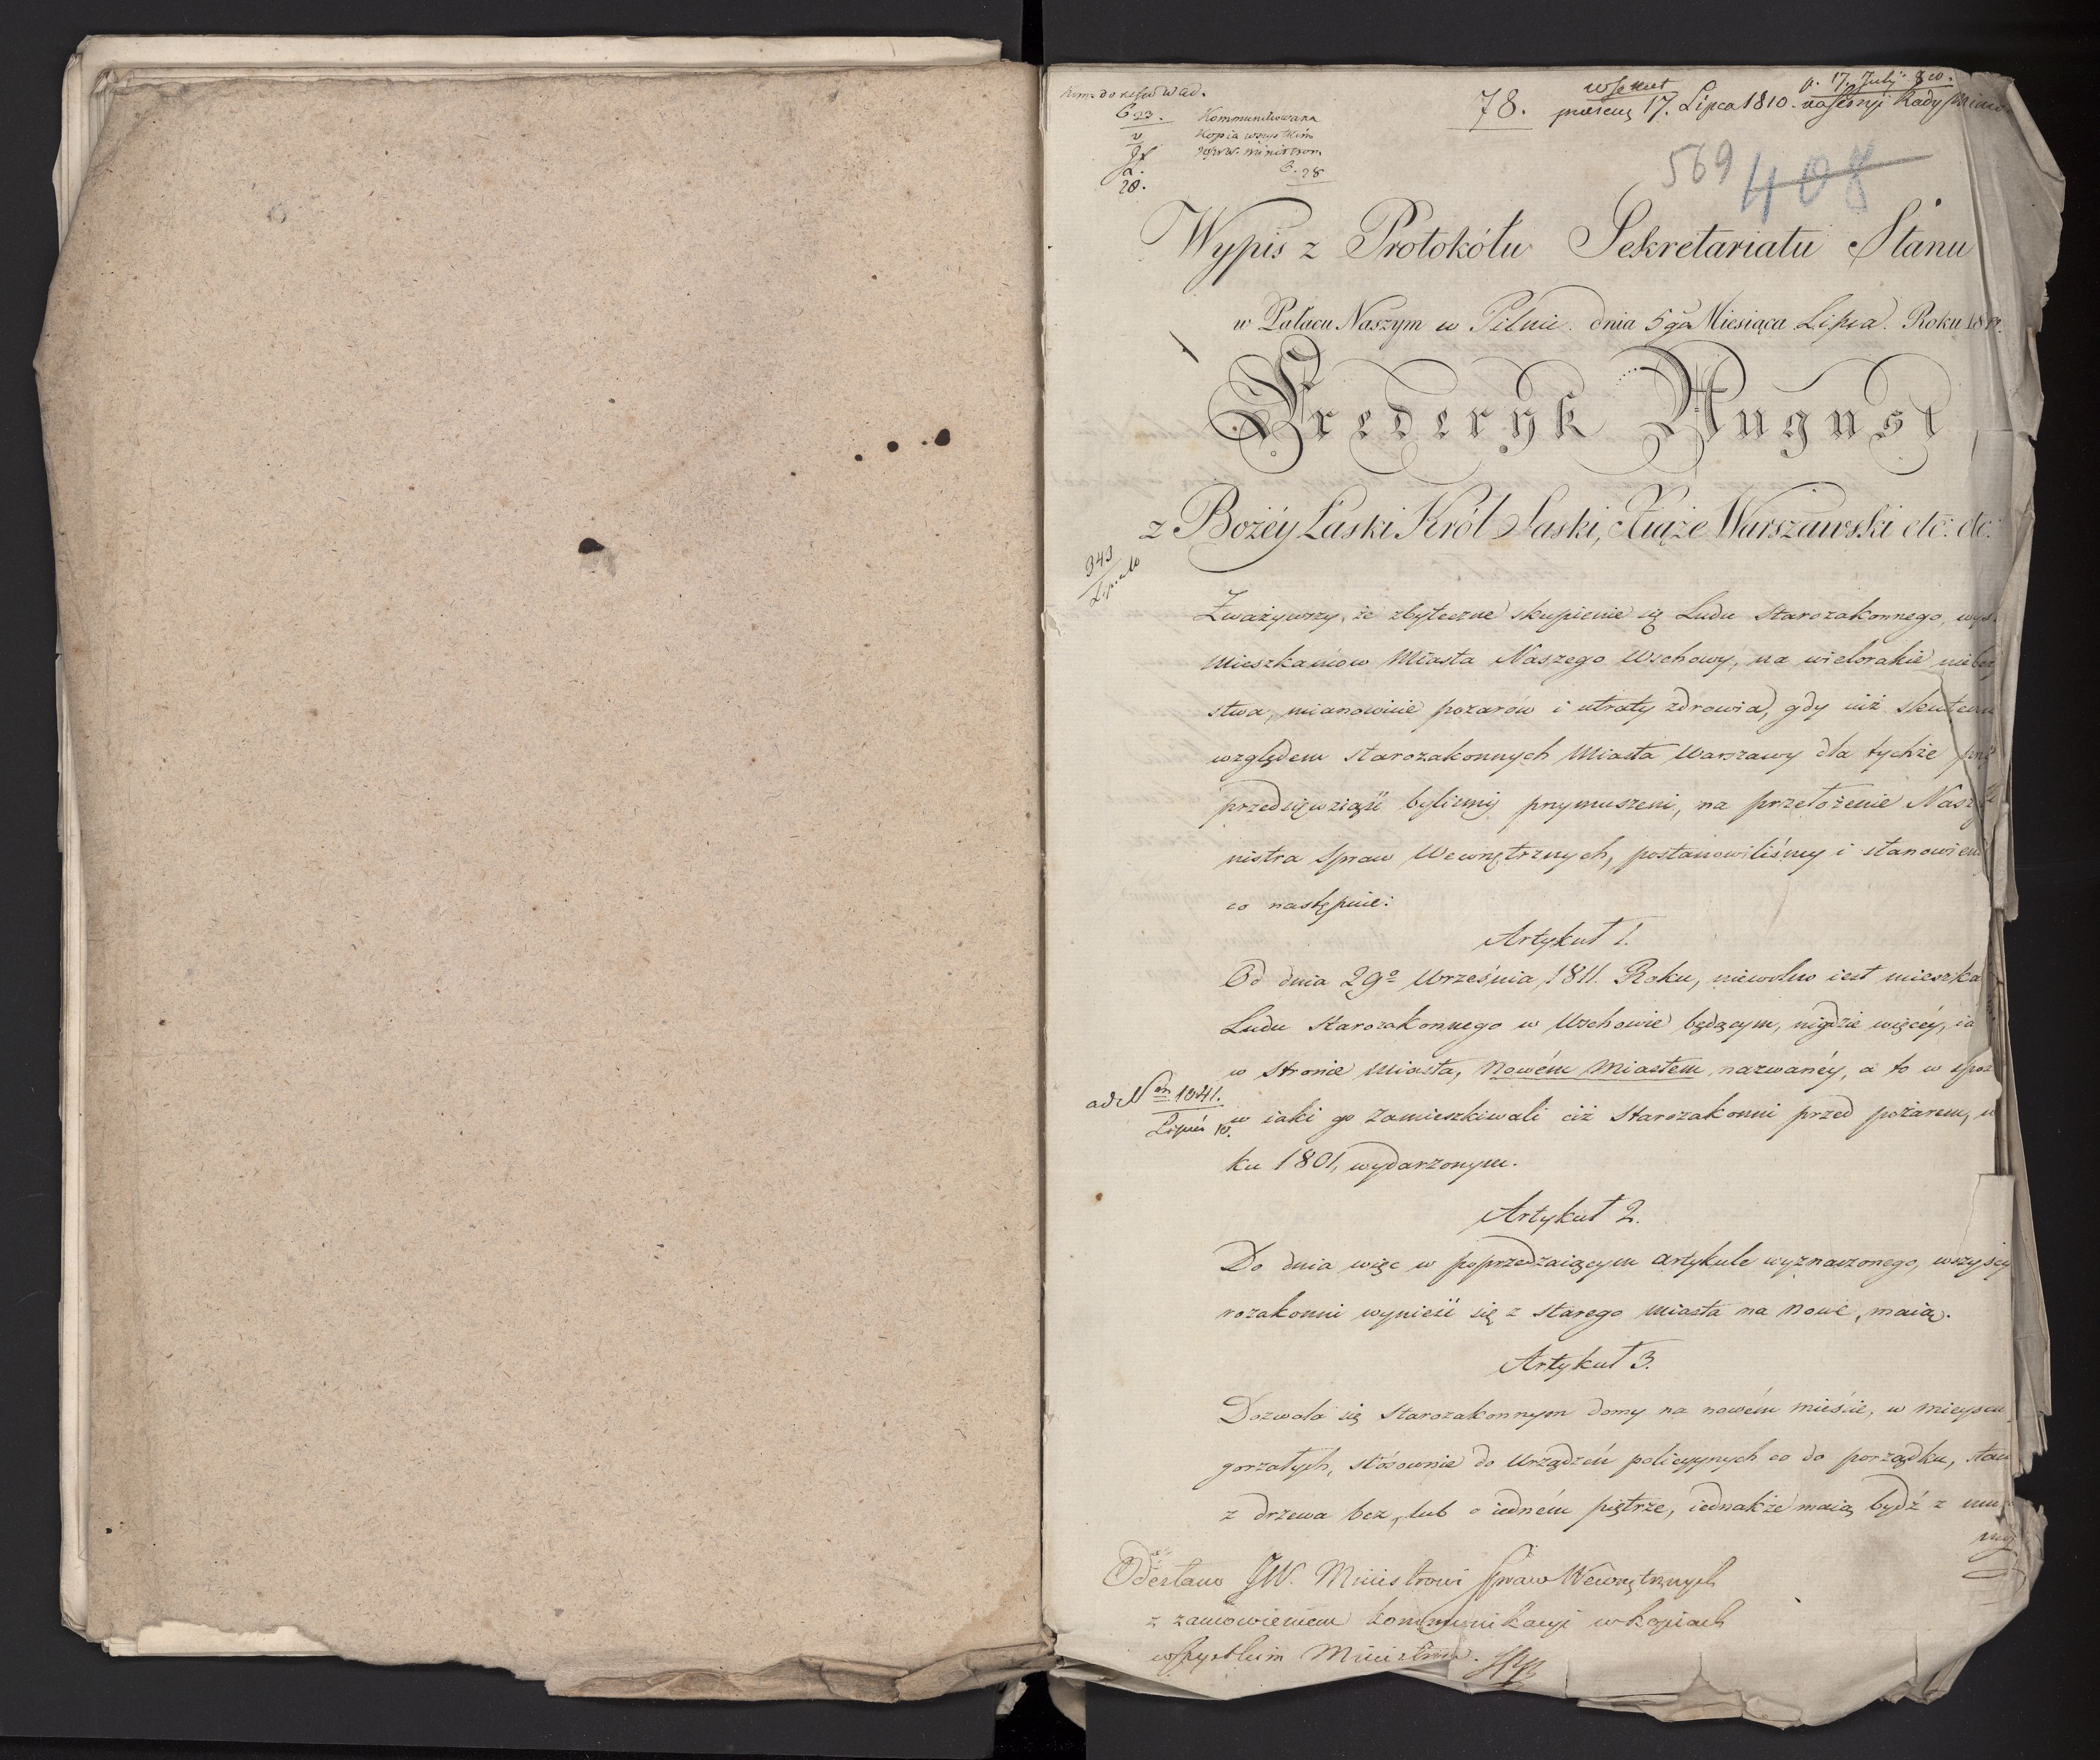 78. 17. Lipca 1810. na sessyi Rady
Kommunikowana
kopia wszystkim
C. 28
20.
569 408
Wypis z Protokółu Sekretariatu Stanu
w Pałacu Naszym w Pilnic. dnia 5go Miesiąca Lipca. Roku 18
Fryderyk August
z Bożéy Łaski Król Saski, Xiąże Warszawski etc: etc:
343
Zważywszy, że zbyteczne skupienie się Ludu Starozakonnego, wys
Mieszkańcow Miasta Naszego Wschowy, na wielorakie niebez
stwa, mianowicie pożarów i utraty zdrowia, gdy iuż skuteczn
względem starozakonnych Miasta Warszawy dla tychże
przedsięwziąść byliśmy przymuszeni, na przełożenie Nasz
nistra Spraw Wewnętrznych, postanowiliśmy i stanowiem
co następuie:
Artykuł 1.
Od dnia 29o Września, 1811. Roku, niewolno iest mieszka
Ludu Starozakonnego w Wschowie będącym, nigdzie więcéy, ia
w Stronie Miasta, Nowém Miastem nazwanéy, a to w spos
ad Nrm 1041.
Lipiec 10.
w iaki go zamieszkiwali ciż Starozakonni przed pożarem, w
ku 1801, wydarzonym.
Artykuł 2.
Do dnia więc w poprzedzaiącym artykule wyznaczonego, wszyscy
rozakonni wynieść się z starego Miasta na Nowe, maią.
Artykuł 3.
Dozwala się Starozakonnym domy na nowém mieście, w mieyscu
gorzałych, stósownie do Urządzeń policyynych co do porządku, staw
z drzewa bez, lub o iedném piętrze, iednakże maią bydź z mu
Odesłano JW. Ministrowi Spraw Wewnętrznych
z zamówieniem kommunikacyi w kopiach
wszystkim Ministrom.